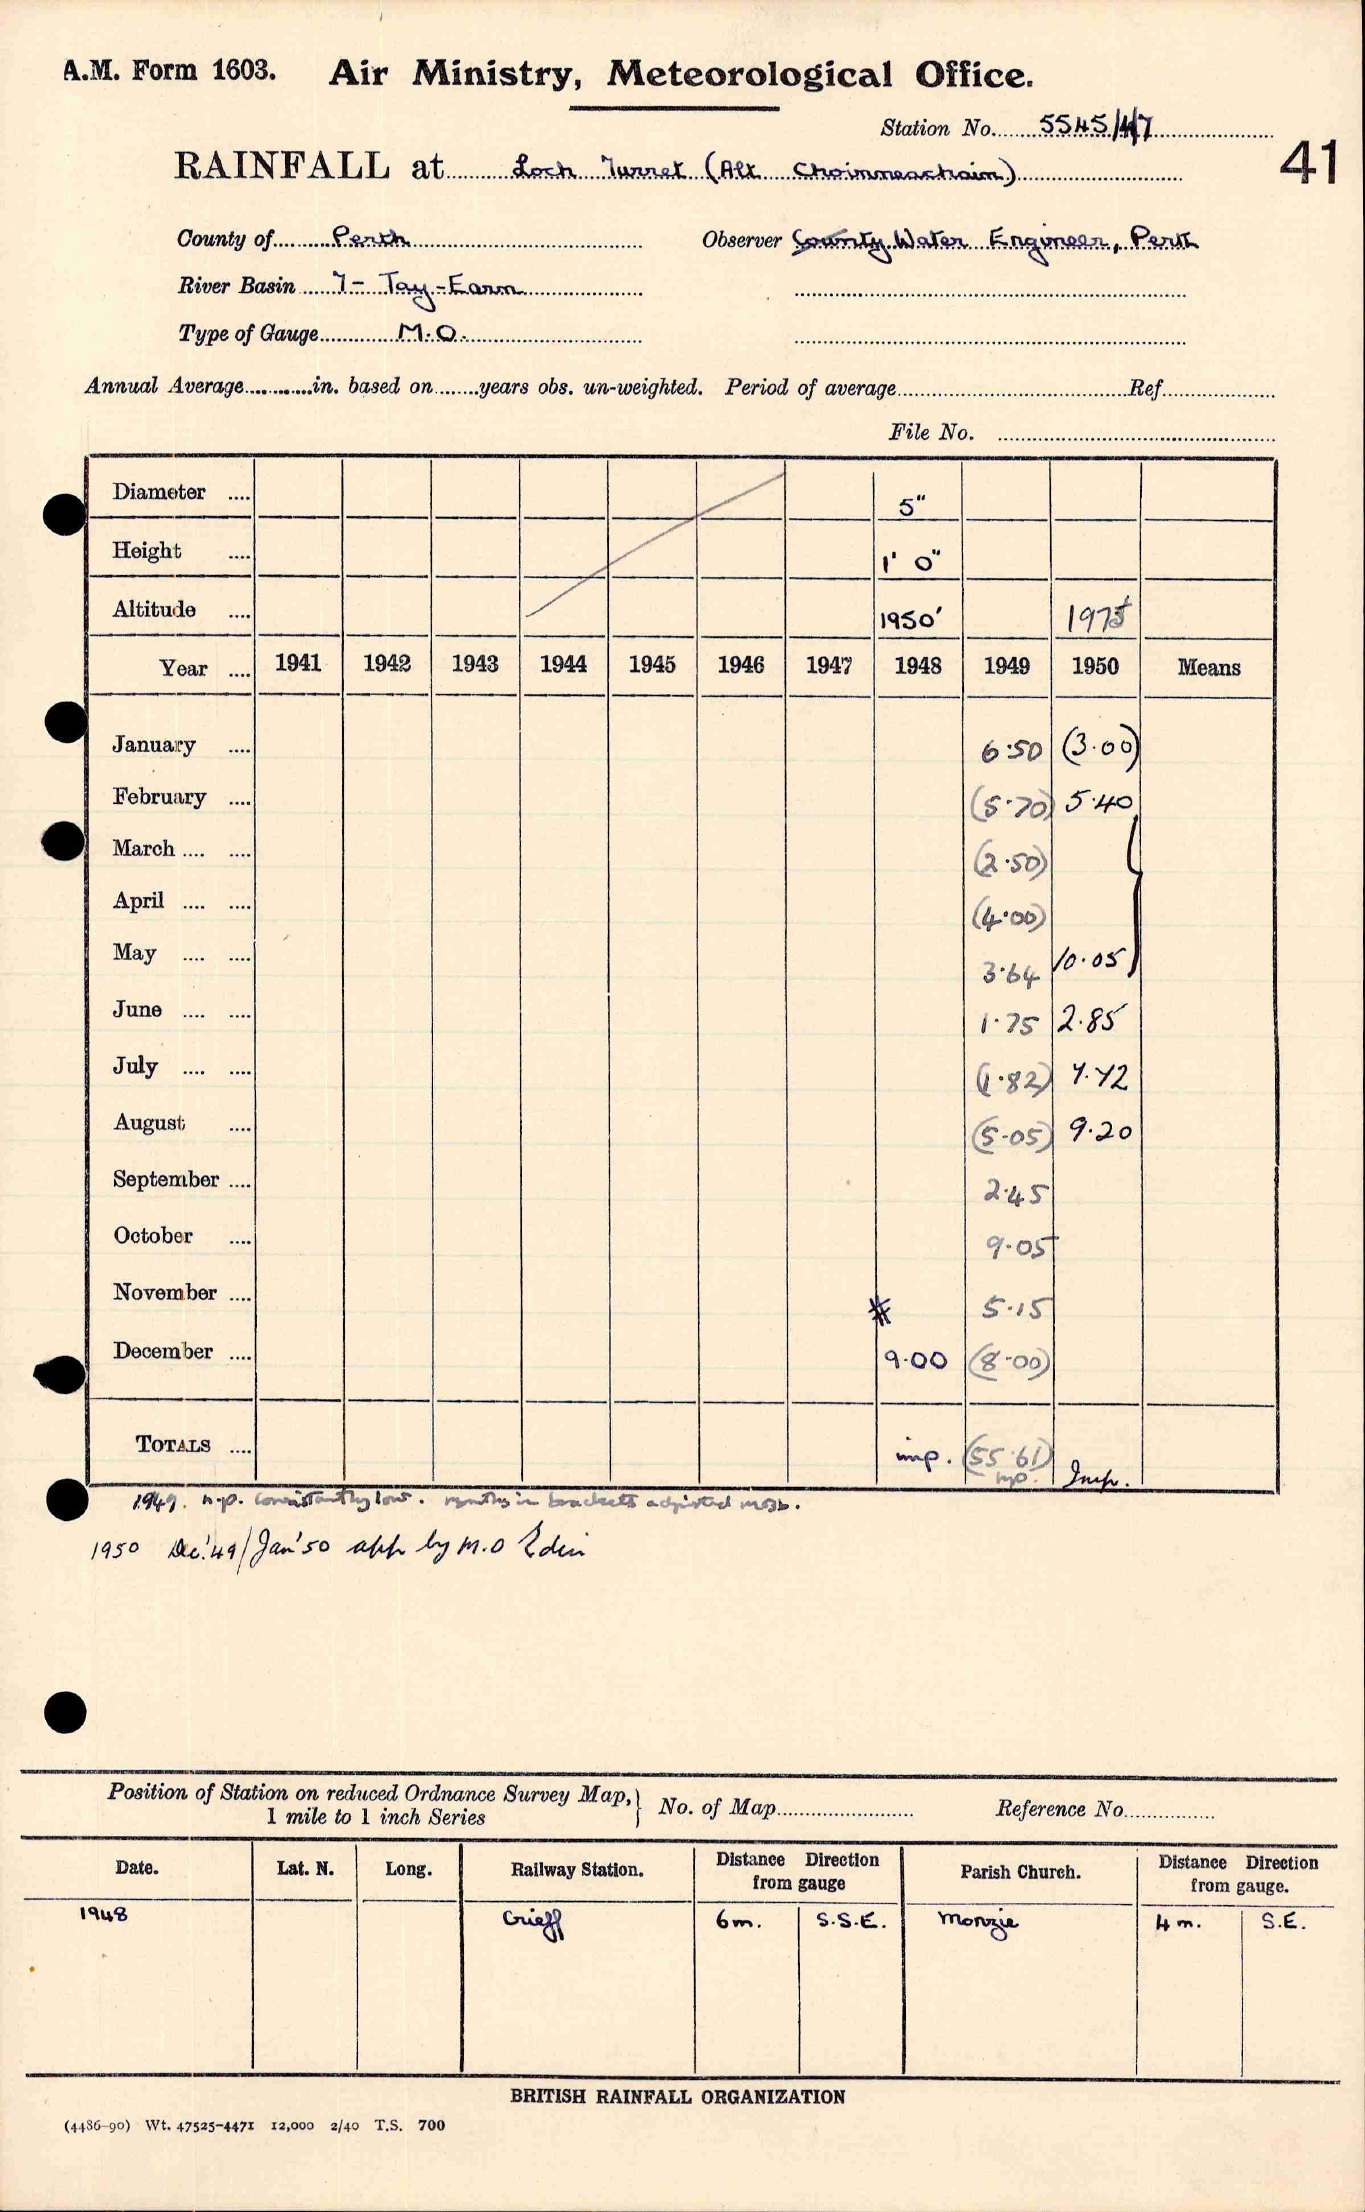 A.M. Form 1603. Air Ministry, Meteorological Office.
Station No. 5545/4/7
41
RAINFALL at Loch Turret (Alt Choinneachain)
County of Perth Observer County Water Engineer, Perth
River Basin 7 - Tay - Earn
Type of Gauge M.O.
Annual Average in. based on years obs. un-weighted. Period of average Ref.
File No.
Diameter 5"
Height 1' 0"
Altitude 1950' 1975
Year 1941 1942 1943 1944 1945 1946 1947 1948 1949 1950 Means
January 6.50 (3.00)
February (5.70) 5.40
March (2.50)
April (4.00)
May 3.64 10.05 }
June 1.75 2.85
July (1.82) 7.72
August (5.05) 9.20
September 2.45
October 9.05
November 5.15
December 9.00 (8.00)
TOTALS imp. (55.61) Imp.
n.p.
1949. n.p. consistantly low. months in brackets adjusted
1950 Dec '49/Jan '50 app by M.O Edin
Position of Station on reduced Ordnance Survey Map, } No. of Map Reference No.
1 mile to 1 inch Series
Date. Lat. N. Long. Railway Station. Distance Direction from gauge Parish Church. Distance Direction from gauge.
1948 Crieff 6m. S.S.E. Monzie 4 m. S.E.
BRITISH RAINFALL ORGANIZATION
(4486-90) Wt. 47525-4471 12,000 2/40 T.S. 700